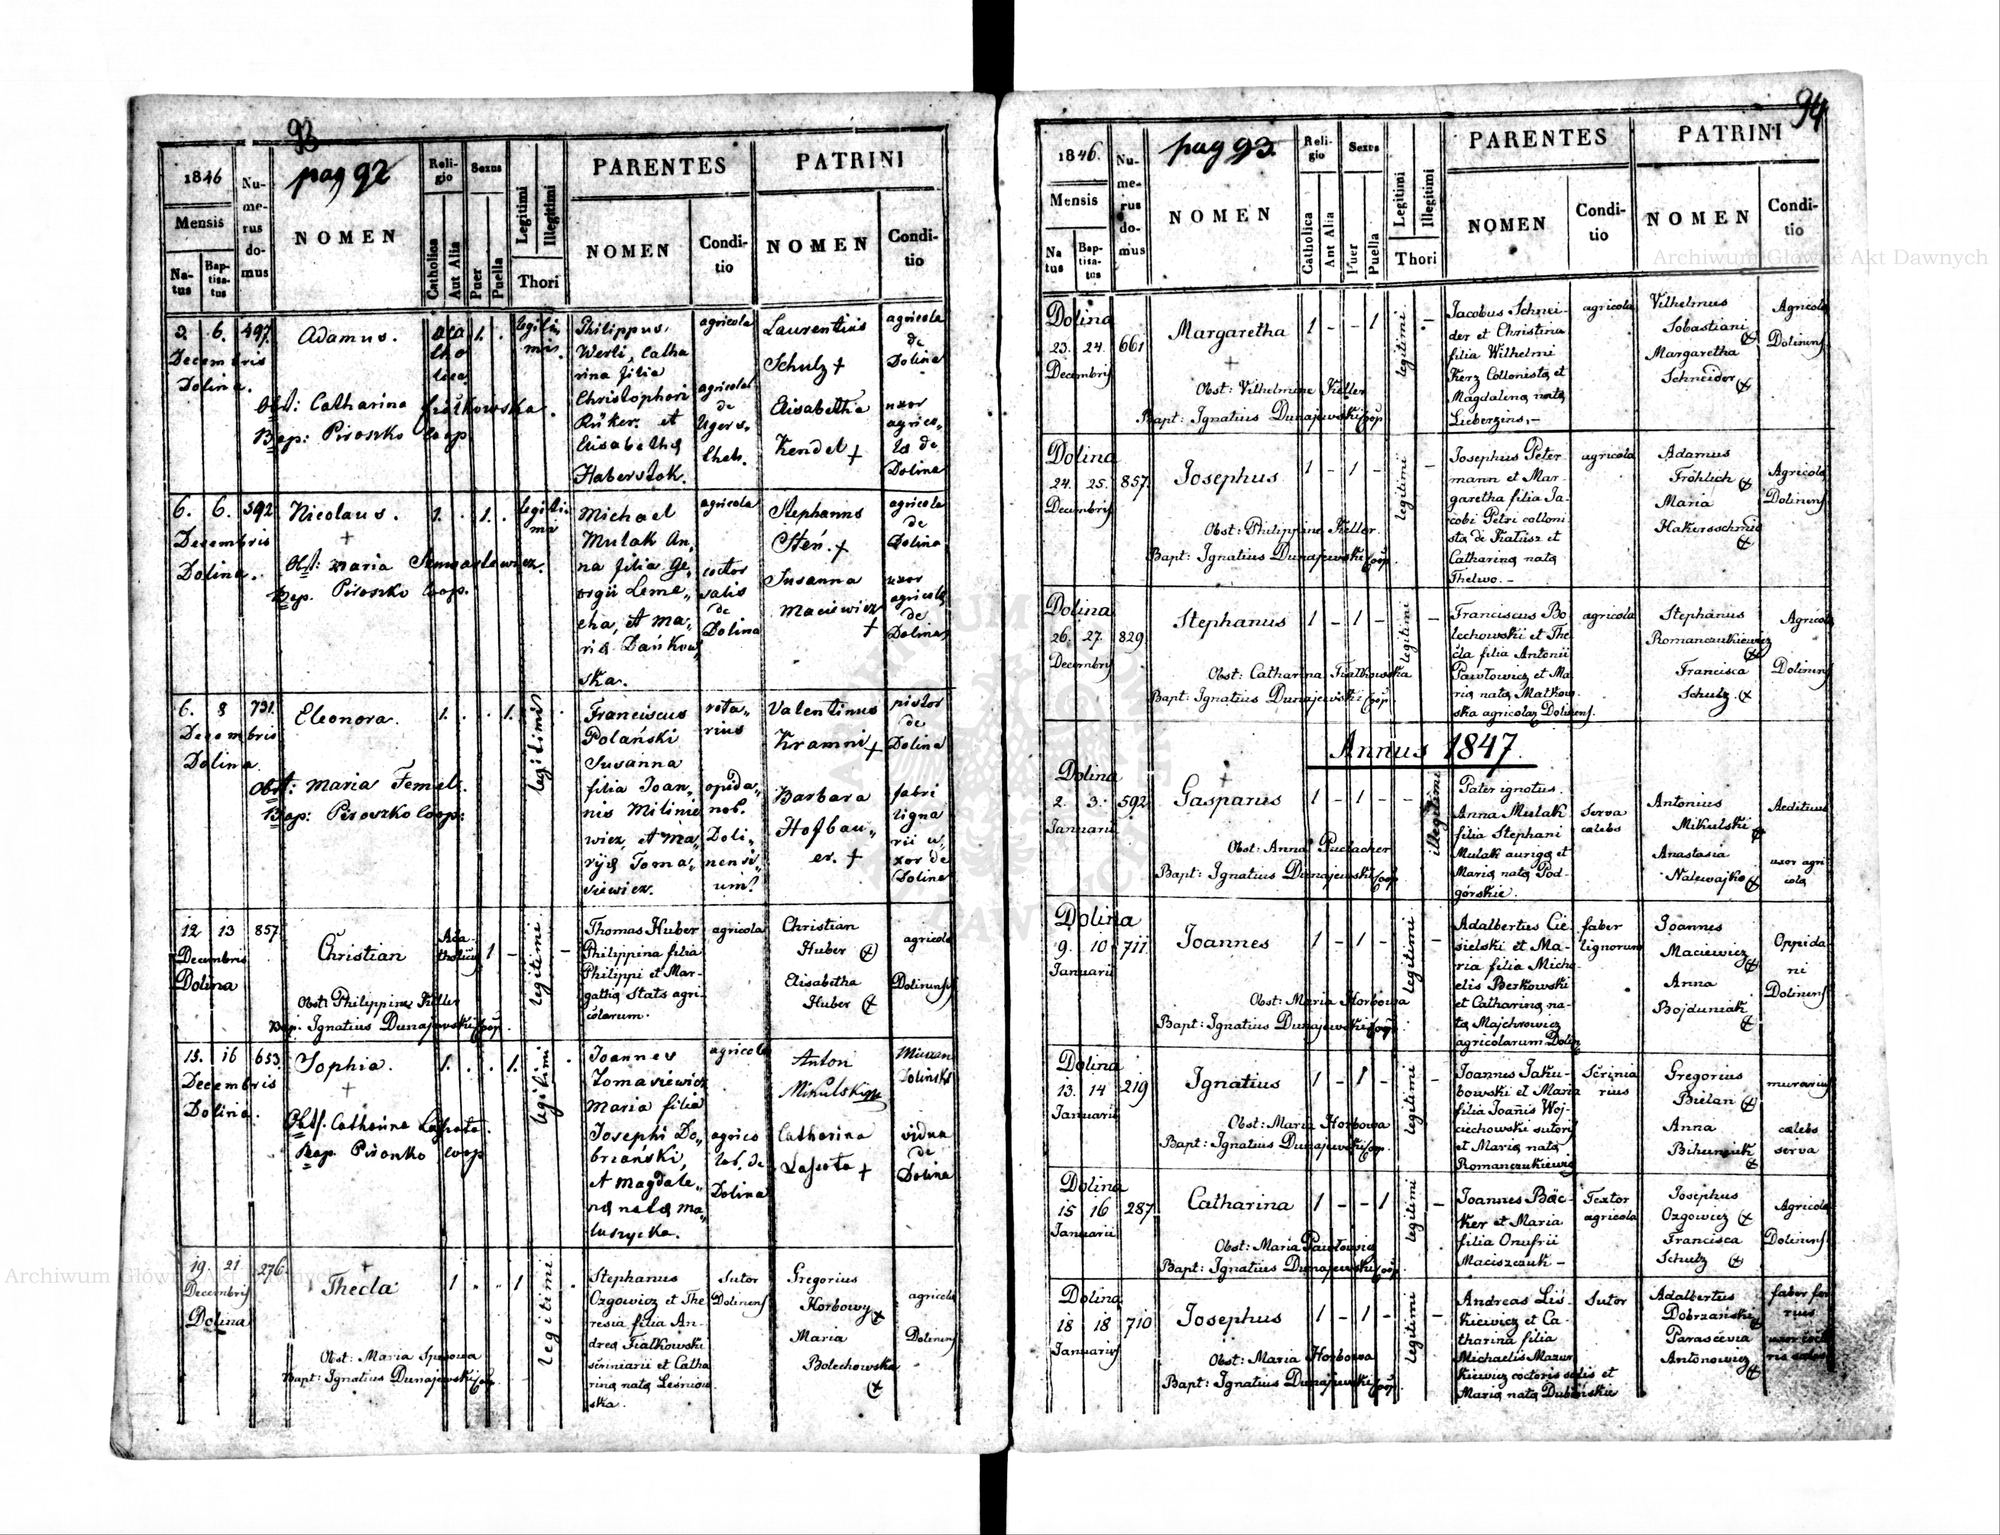 93
pag 92
1846
Mensis
Natus
Baptisatus
Numerus domus
NOMEN
Religio
Catholica
Aut Alia
Sexus
Puer
Puella
Legitimi
Illegitimi
Thori
PARENTES
NOMEN
Conditio
PATRINI
NOMEN
Conditio
2. 6. 497.
Decembris
Dolina.
Adamus.
Obst: Catharina Fiałkowska.
Bap: Piroszko Coop
1.
Philippus
Werli, Catha
rina filia
Christophori
Rüker et
Elisabetha
Haberstok.
agricola
agricola
de
Ugers
Laurentius
Schulz +
Elisabetha
Kendel +
agricola
de
Dolina
uxor
agrico-
la de
Dolina
6. 6. 592
Decembris
Dolina.
Nicolaus.
Obst: Maria
Bap. Piroszko Coop.
1. . 1. .
legiti
mi
Michael
Mulak An,
na filia Ge,
orgii Leme,
cha, et Ma,
ria Dańkow
ska.
agricola
coctor
salis
de
Dolina
Stephanus
Steń. +
Susanna
Maciewicz
+
agricola
de
Dolina
uxor
agricola
de
Dolina
6. 8 731.
Decembris
Dolina.
Eleonora.
Obst: Maria Femel.
Bap: Piroszko Coop:
1. . . 1.
legitimis
Franciscus
Polański
Susanna
filia Joan,
nis Milinie
wicz, et Ma,
ryia Toma,
siewicz.
rota,
rius
opida,
nob.
Doli,
nensi,
um.
Valentinus
Kramni +
Barbara
Hofbau,
er. +
pistor
de
Dolina
fabri
ligna
rii u,
xor de
Dolina
12 13 857.
Decembris
Dolina
Christian
Obst: Philippina Keller
Bap. Ignatius Dunajewski Coop.
Aca-
tholicus
1 -
legitimi
Thomas Huber
Philippina filia
Philippi et Mar-
gatha Stats agri-
colarum.
agricola
Christian
Huber (+)
Elisabetha
Huber (+)
agricola
Dolinens
15. 16 653.
Decembris
Dolina.
Sophia.
Obst. Catharina Lassota.
Bap. Pironko Coop
1. . . 1.
legitimi
Joannes
Tomasiewicz
Maria filia
Josephi Do,
brzański,
et Magdale,
na nata Ma,
luszycka.
agricola
agrico
lab. de
Dolina
Anton
Mikulski
Catharina
Lassota +
vidua
de
Dolina
19. 21 276.
Decembris
Dolina
+
Thecla
Obst: Maria
Bapt: Ignatius Dunajewski Coop.
1 . . 1
legitimi
Stephanus
Ozgowicz et The
resia filia An-
drea Fiałkowski
scriniarii et Catha
rina nata Leśniow
ska.
Sutor
Dolinens
Gregorius
Horbowy +
Maria
Bolechowska
(+)
agricola
Dolinens
94
pag 93.
1846.
Mensis
Natus
Baptisatus
Numerus domus
NOMEN
Religio
Catholica
Aut Alia
Sexus
Puer
Puella
Legitimi
Illegitimi
Thori
PARENTES
NOMEN
Conditio
PATRINI
NOMEN
Conditio
Dolina
23. 24. 661
Decembris
Margaretha
+
Obst: Vilhelmine Keller
Bapt: Ignatius Dunajewski Coop
1 - - 1
legitimi
Jacobus Schnei-
der et Christina
filia Wilhelmi
Kerz Collonista et
Magdalena nata
Lieberzins,-
agricola
Vilhelmus
Sobastiani
Margaretha
Schneider (+)
Agricola
Dolinens
Dolina
24. 25. 857.
Decembris
Josephus
Obst: Philippine Keller
Bapt: Ignatius Dunajewski Coop.
1 - 1 -
legitimi
Josephus Peter
mann et Mar-
garetha filia Ja-
cobi Petri colloni
sta de Kałusz et
Catharina nata
Thelwo.-
agricola
Adamus
Fröhlich (+)
Maria
(+)
Agricola
Dolinens
Dolina
26. 27. 829
Decembris
Stephanus
Obst: Catharina Fiałkowska
Bapt: Ignatius Dunajewski Coop
1 - 1 -
legitimi
Franciscus Bo
lechowski et The
cla filia Antonii
Pawłowicz et Ma
ria nata Matkow.
ska agricola Dolinens.
agricola
Stephanus
Romanczukiewicz
(+)
Francisca
Schulz (+)
Agricola
Dolinens
Annus 1847.
Dolina
2. 3. 592
Januarii
+
Gasparus
Obst: Anna Puclacher
Bapt: Ignatius Dunajewski Coop
1 - 1 - -
illegitimi
Pater ignotus.
Anna Mulak
filia Stephani
Mulak auriga et
Maria nata Pod-
górskie.
Serva
calebs
Antonius
Mikulski (+)
Anastasia
Nalewajko (+)
Aedituus
uxor agri
cola
Dolina
9. 10 711
Januarii
Joannes
Obst: Maria Horbowa
Bapt: Ignatius Dunajewski Coop
1 - 1 -
legitimi
Adalbertus Cie
sielski et Ma-
ria filia Micha
elis Berkowski
et Catharina na-
ta Majchrowicz
agricolarum Dolin
faber
lignorum
Joannes
Maciewicz (+)
Anna
Bojduniak
(+)
Oppida
ni
Dolinens
Dolina
13. 14 219
Januarii
Ignatius
Obst: Maria Horbowa
Bapt: Ignatius Dunajewski Coop.
1 - 1 -
legitimi
Joannes Jaku-
bowski et Maria
filia Joanis Woj-
ciechowski sutoris
et Maria nata
Romanczukiewicz
Scrinia
rius
Gregorius
Bielan (+)
Anna
Bihuniuk
(+)
murarius
calebs
serva
Dolina
15 16 287
Januarii
Catharina
Obst: Maria Pawłowicz
Bapt: Ignatius Dunajewski Coop
1 - - 1
legitimi
Joannes Bäc-
ker et Maria
filia Onufrii
Maciszczuk -
Textor
agricola
Josephus
Ozgowicz (+)
Francisca
Schulz (+)
Agricola
Dolinens
Dolina
18 18 710
Januarius
Josephus
Obst: Maria Horbowa
Bapt: Ignatius Dunajewski Coop.
1 - 1 -
legitimi
Andreas Liś-
kiewicz et Ca-
tharina filia
Michaelis Mazur
kiewicz coctoris salis et
Maria nata Dubińskie
Sutor
Adalbertus
Dobrzański
Parascevia
Antonowicz
(+)
faber fer
rius
Archiwum Główne Akt Dawnych
Archiwum Główne Akt Dawnych